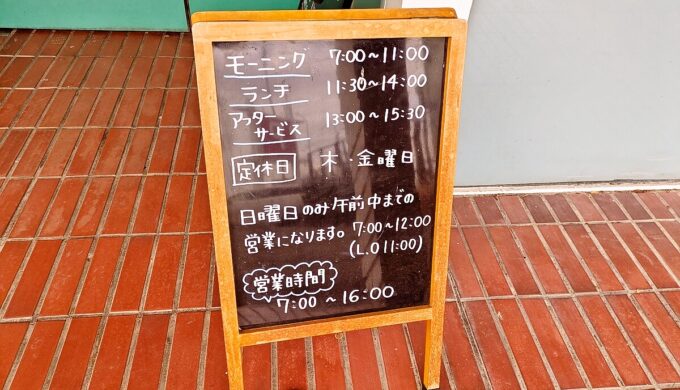 モーニング 7:00～11:00
ランチ 11:30～14:00
アフター
サービス 13:00～15:30
定休日 木・金曜日
日曜日のみ午前中までの
営業になります。7:00～12:00
(L.O 11:00)
営業時間
7:00～16:00